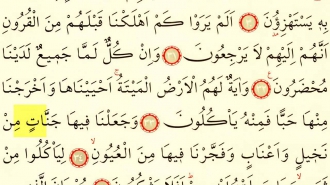 بِهِ يَسْتَهْزِؤُنَ اَلَمْ يَرَوْا كَمْ اَهْلَكْنَا قَبْلَهُمْ مِنَ الْقُرُونِ
اَنَّهُمْ اِلَيْهِمْ لَا يَرْجِعُونَ وَاِنْ كُلٌّ لَمَّا جَمِيعٌ لَدَيْنَا
مُحْضَرُونَ وَاٰيَةٌ لَهُمُ الْاَرْضُ الْمَيْتَةُ اَحْيَيْنَاهَا وَاَخْرَجْنَا
مِنْهَا حَبًّا فَمِنْهُ يَاْكُلُونَ وَجَعَلْنَا فِيهَا جَنَّاتٍ مِنْ
نَخِيلٍ وَاَعْنَابٍ وَفَجَّرْنَا فِيهَا مِنَ الْعُيُونِ لِيَاْكُلُوا مِنْ